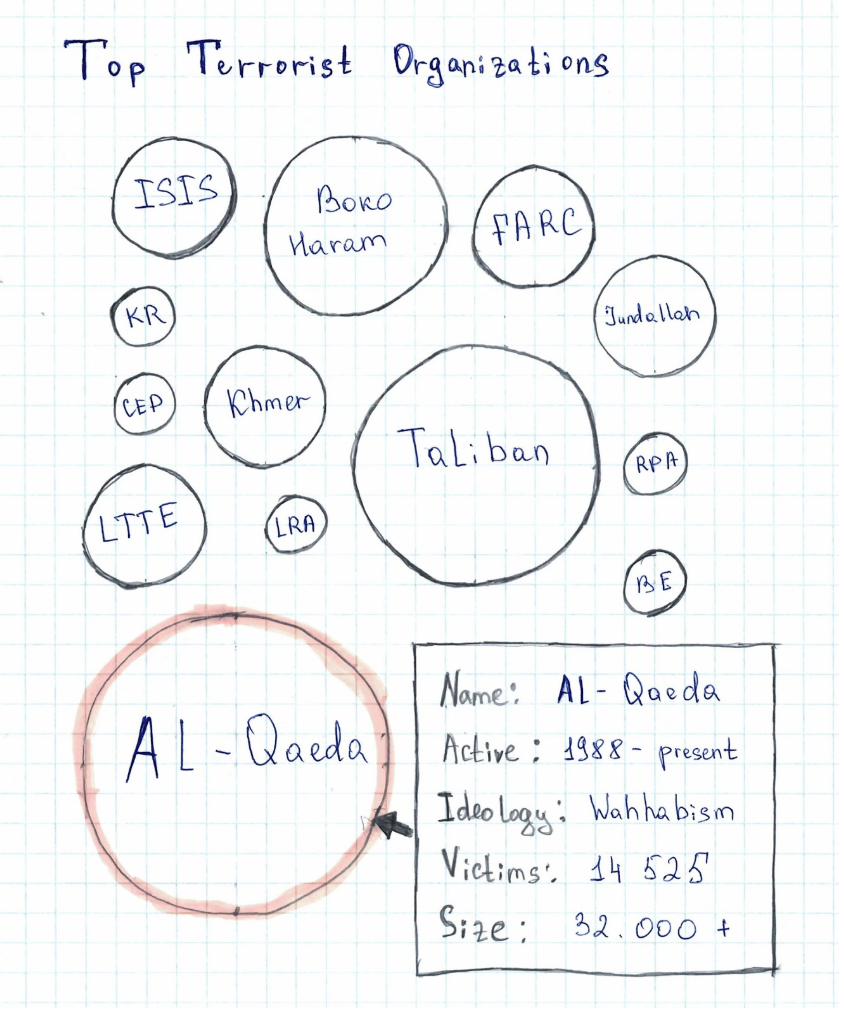 Top Terrorist Organizations
ISIS
Boko
Haram
FARC
KR
Jundallah
CEP
Khmer
TaLiban
RPA
LTTE
LRA
BE
AL-Qaeda
Name: AL-Qaeda
Active: 1988 - present
Ideology: Wahhabism
Victims: 14 525
Size: 32.000 +